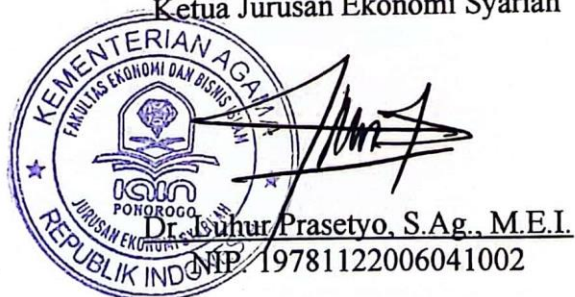 Ketua Jurusan Ekonomi Syariah
KEMENTERIAN AGAMA
FAKULTAS EKONOMI DAN BISNIS ISLAM
IAIN
PONOROGO
JURUSAN EKONOMI SYARIAH
REPUBLIK INDONESIA
Dr. Luhur Prasetyo, S.Ag., M.E.I.
NIP. 19781122006041002